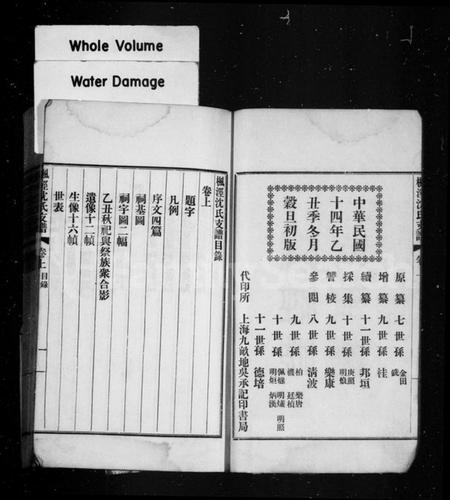 Whole Volume
Water Damage
中華民國
十四年乙
丑季冬月
穀旦初版
原纂 七世孫 金田
增纂 九世孫 洼
續纂 十一世孫 邦垣
採集 十世孫 庚照 明煨
讐校 九世孫 樂康
參閱 八世孫 清波
九世孫 柏 樂唐 廷楨
十世孫 明照
十一世孫 德培
代印所 上海九畝地吳承記印書局
楓涇沈氏支譜
楓涇沈氏支譜目錄
卷上
題字
凡例
序文四篇
祠基圖
祠宇圖二幅
乙丑秋祀與祭族衆合影
遺像十二幀
生像十六幀
世表
楓涇沈氏支譜 卷上 目錄